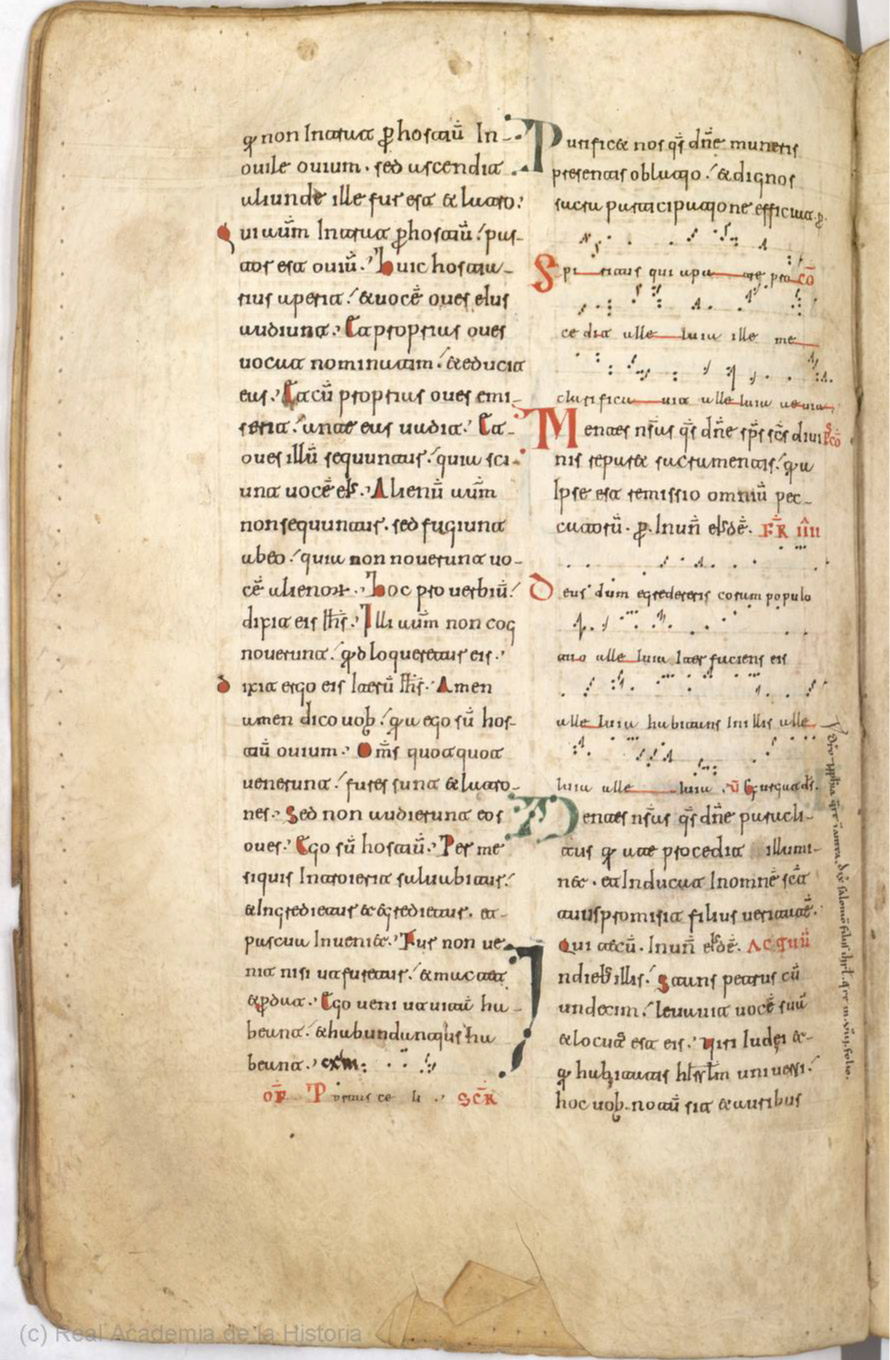 q̄ non Intrat ꝑ hostiū In
ouile ouium. sed ascendit
aliunde ille fur est & latro.
Qui aūm Intrat ꝑ hostiū pas
tor est ouiū. huic hostia
rius aperit & uocē oues eius
audiunt. Ea proprias oues
uocat nominatim. & educit
eas. Ea cū proprias oues emi
serit. ante eas uadit. Ea
oues illū sequuntur. quia sci
unt uocē ei᷒. Alienū aūm
non sequuntur. sed fugiunt
ab eo. quia non nouerunt uo
cē alienoꝝ. hoc prouerbiū
dixit eis Ihs̄. Illi aūm non cog
nouerunt. qd loqueretur eis.
dixit ergo eis Iterū Ihs̄. Amen
amen dico uob. q̄a ego sū hos
tiū ouium. Om̄s quotquot
uenerunt. fures sunt & latro
nes. Sed non audierunt eos
oues. Ego sū hostiū. Per me
siquis Introierit saluabitur.
& Ingredietur & egredietur. et
pascua Inueni&. Fur non ue
nit nisi ut furetur. & mactet
& ꝑdat. Ego ueni ut uitā ha
beant. & habundantius ha
beant.
OF̄ Portas celi SCR̄
Purific& nos qs̄ dn̄e muneris
presentis oblatio. & dignos
sacra participatione efficiat. ꝑ
Spiritus qui a patre pro cō
cedit alleluia ille me
clarificauit alleluia alleluia
Mentes nr̄as qs̄ dn̄e sp̄s sc̄s diui pꝰcō
nis repar& sacramentis. q̄a
Ipse est remissio omniū pec
catorū. ꝑ. Inun̄ FR̄ IIII
Deus dum egredereris coram populo
tuo alleluia Iter faciens eis
alleluia habitans In illis alle
luia alleluia
Mentes nr̄as qs̄ dn̄e paracli
tus q̄ a te procedit illumi
n&. & Inducat In omnē
sicut tuus promisit filius ueritatē.
Qui tecū. Inun̄
In dieb᷒ illis. Stans petrus cū
undecim. leuauit uocē suā
& locut᷒ est eis. Uiri Iudei &
q̄ habitatis hrs̄lm uniuersi.
hoc uob. notū sit & auribus
(c) Real Academia de la Historia